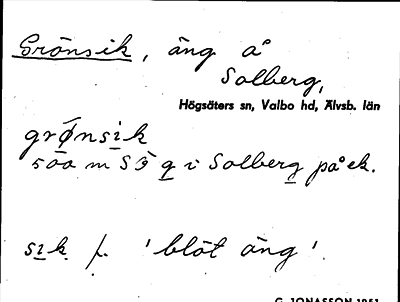 Grönsik, äng å
Solberg,
Högsäters sn, Valbo hd, Älvsb. län
grø̄nsi̲k
500 m SÖ g i Solberg på ek.
si̲k f. 'blöt äng'.
G. JONASSON 1951